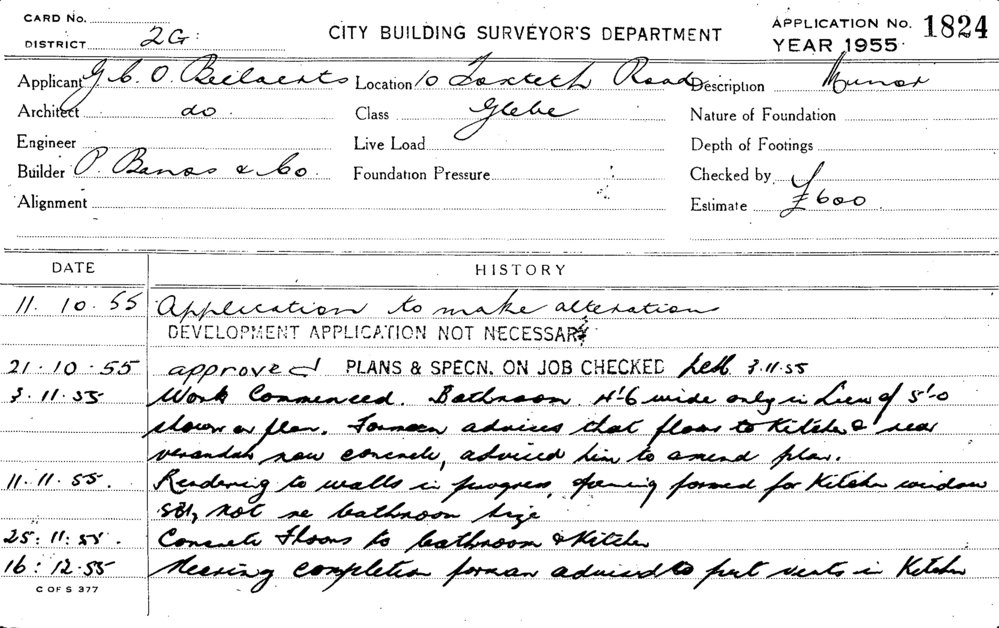 CARD No.
DISTRICT 2G.
CITY BUILDING SURVEYOR'S DEPARTMENT
APPLICATION No. 1824
YEAR 1955
Applicant G. C. O. Beelaerts Location 10 Toxteth Road Description Minor
Architect do Class Glebe Nature of Foundation
Engineer Live Load Depth of Footings
Builder P. Banas & Co. Foundation Pressure Checked by
Alignment Estimate £600
DATE HISTORY
11. 10. 55 Application to make alterations
DEVELOPMENT APPLICATION NOT NECESSARY
21. 10. 55 approved PLANS & SPECN. ON JOB CHECKED 3.11.55
3. 11. 55 Work Commenced. Bathroom 4'-6 wide only in Lieu of 5'-0
shown on plan. Foreman advises that floors to Kitchen & rear
verandah now concrete, advised him to amend plan.
11. 11. 55. Rendering to walls in progress, opening formed for Kitchen window
not re bathroom size
25: 11: 55. Concrete Floors to bathroom & Kitchen
16: 12. 55 Nearing completion forman advised to put vents in Kitchen
C OF S 377